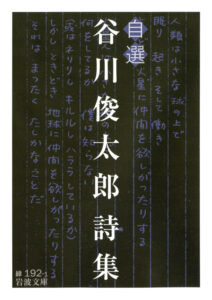 人類は小さな球の上で
眠り 起き そして働き
火星に仲間を欲しがったりする
自選
谷川俊太郎詩集
何をしてるか 僕は知らない
(或はネリリし キルルし ハララしているか)
しかしときどき 地球に仲間を欲しがったりする
それはまったくたしかなことだ
緑192-1
岩波文庫